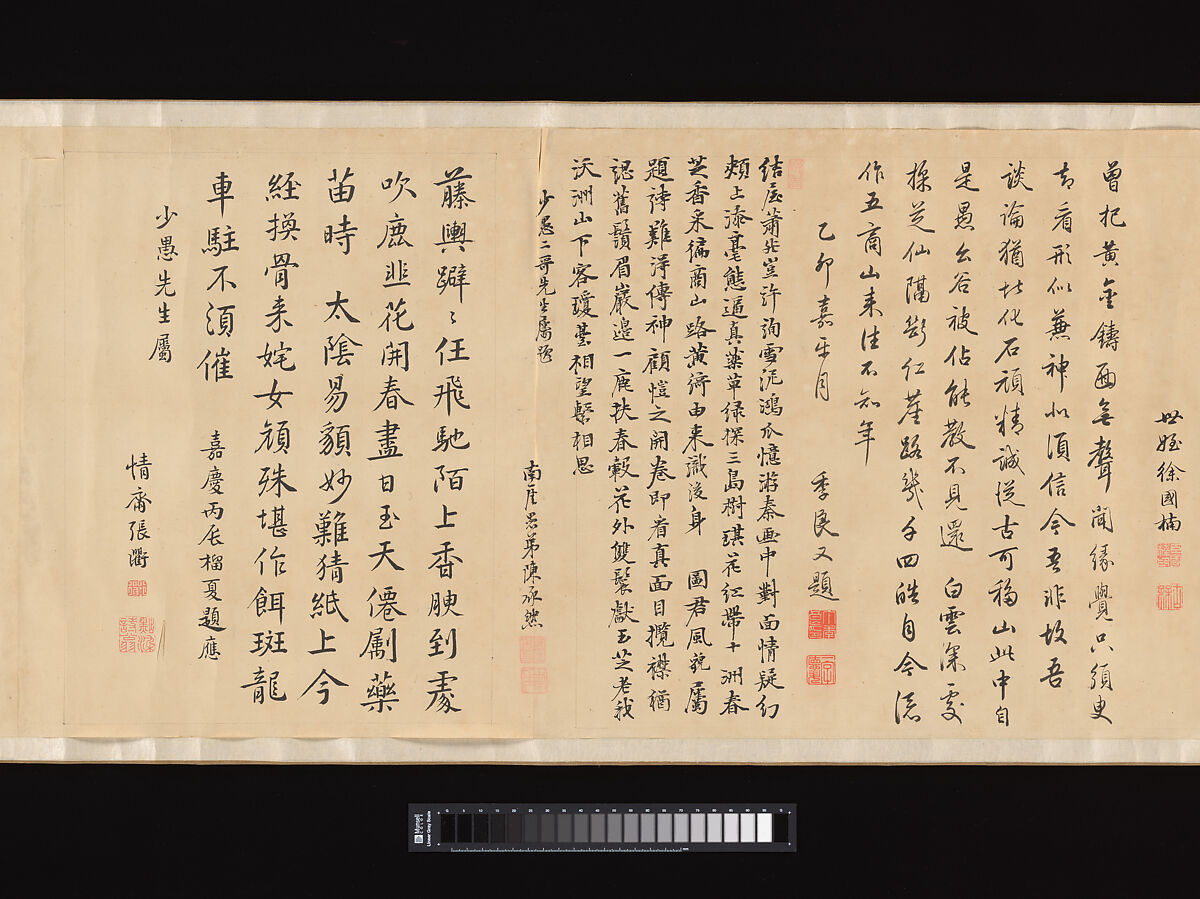 世姪徐國楠
曾把黃金鑄面無聲聞緣覺只須臾
看形似兼神似須信今吾非故吾
談論猶堪化石頑精誠從古可移山此中自
是愚公谷被佔能教不見還 白雲深處
採芝仙隔斷仁崖路幾千四皓自今添
作五商山來往不知年
乙卯嘉平月 季良又題
結屋蕭然豈許詢雪泥鴻爪憶游秦画中對面情疑幻
頰上添毫態逼真藥草綠探三島樹琪花紅帶十洲春
芝香采徧商山路黃綺由來識後身 圖君風貌屬
題詩難得傳神顧愷之開卷即看真面目攬襟猶
認舊鬚眉巖邊一鹿扶春轂花外雙鬟獻玉芝老我
沃洲山下客瓊臺相望繫相思
少愚二哥先生屬題
南崖愚弟陳承然
藤輿躃〻任飛馳陌上香腴到處
吹鹿韭花開春盡日玉天僊劚藥
苗時 太陰易貌妙難猜紙上今
經換骨来姹女頎殊堪作餌斑龍
車駐不須催 嘉慶丙辰榴夏題應
少愚先生屬
情齋張衢